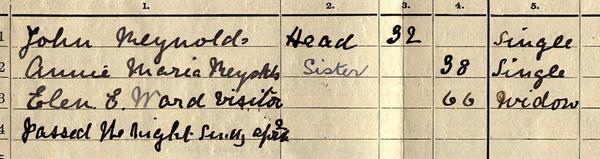 1. 2. 3. 4. 5.
1 John Reynolds Head 32 Single
2 Annie Maria Reynolds Sister 38 Single
3 Elen E. Ward visitor 66 Widow
4 Passed the Night Sunday April 2